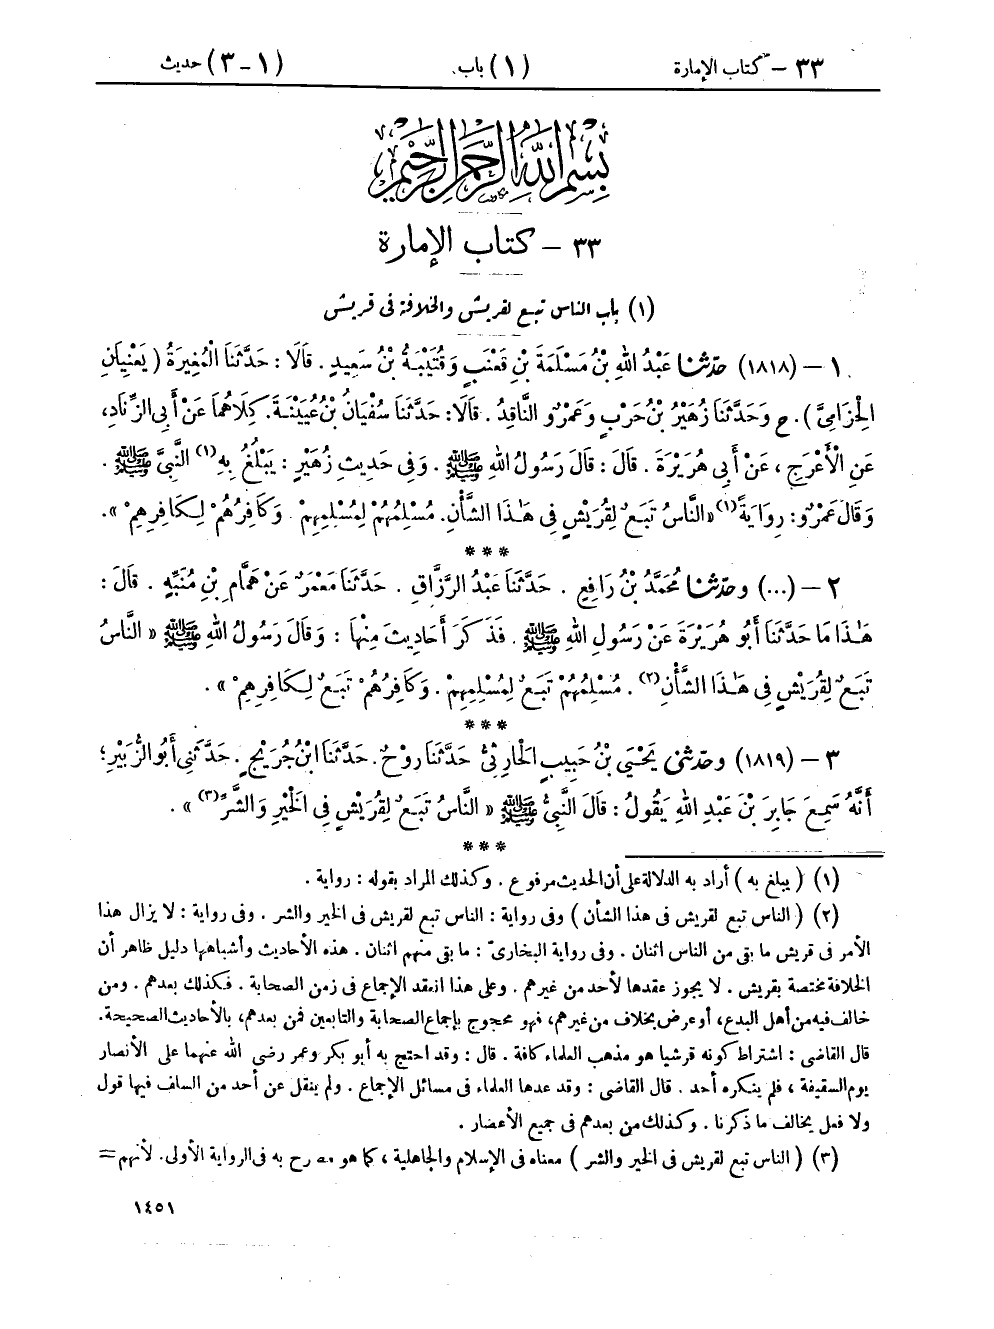 ٣٣ – كتاب الإمارة (١) باب (١ – ٣) حديث
بسم الله الرحمن الرحيم
٣٣ – كتاب الإمارة
(١) باب الناس تبع لقريش والخلافة فى قريش
١ – (١٨١٨) حَدَّثَنَا عَبْدُ اللهِ بْنُ مَسْلَمَةَ بْنِ قَعْنَبٍ وَقُتَيْبَةُ بْنُ سَعِيدٍ . قَالَا : حَدَّثَنَا الْمُغِيرَةُ ( يَعْنِيَانِ
الْحِزَامِيَّ ) . ح وَحَدَّثَنَا زُهَيْرُ بْنُ حَرْبٍ وَعَمْرٌو النَّاقِدُ . قَالَا : حَدَّثَنَا سُفْيَانُ بْنُ عُيَيْنَةَ. كِلَاهُمَا عَنْ أَبِي الزِّنَادِ،
عَنِ الْأَعْرَجِ ، عَنْ أَبِي هُرَيْرَةَ . قَالَ : قَالَ رَسُولُ اللهِ ﷺ . وَفِي حَدِيثِ زُهَيْرٍ : يَبْلُغُ بِهِ(١) النَّبِيَّ ﷺ .
وَقَالَ عَمْرٌو : رِوَايَةً(١) «النَّاسُ تَبَعٌ لِقُرَيْشٍ فِي هَٰذَا الشَّأْنِ. مُسْلِمُهُمْ لِمُسْلِمِهِمْ . وَكَافِرُهُمْ لِكَافِرِهِمْ ».
***
٢ – (...) وَحَدَّثَنَا مُحَمَّدُ بْنُ رَافِعٍ . حَدَّثَنَا عَبْدُ الرَّزَّاقِ . حَدَّثَنَا مَعْمَرٌ عَنْ هَمَّامِ بْنِ مُنَبِّهٍ . قَالَ :
هَٰذَا مَا حَدَّثَنَا أَبُو هُرَيْرَةَ عَنْ رَسُولِ اللهِ ﷺ . فَذَكَرَ أَحَادِيثَ مِنْهَا : وَقَالَ رَسُولُ اللهِ ﷺ « النَّاسُ
تَبَعٌ لِقُرَيْشٍ فِي هَٰذَا الشَّأْنِ(٢) . مُسْلِمُهُمْ تَبَعٌ لِمُسْلِمِهِمْ . وَكَافِرُهُمْ تَبَعٌ لِكَافِرِهِمْ » .
***
٣ – (١٨١٩) وَحَدَّثَنِي يَحْيَى بْنُ حَبِيبٍ الْحَارِثِيُّ حَدَّثَنَا رَوْحٌ. حَدَّثَنَا ابْنُ جُرَيْجٍ . حَدَّثَنِي أَبُو الزُّبَيْرِ؛
أَنَّهُ سَمِعَ جَابِرَ بْنَ عَبْدِ اللهِ يَقُولُ : قَالَ النَّبِيُّ ﷺ « النَّاسُ تَبَعٌ لِقُرَيْشٍ فِي الْخَيْرِ وَالشَّرِّ(٣) » .
***
(١) ( يبلغ به ) أراد به الدلالة على أن الحديث مرفوع . وكذلك المراد بقوله : رواية .
(٢) ( الناس تبع لقريش فى هذا الشأن ) وفى رواية : الناس تبع لقريش فى الخير والشر . وفى رواية : لا يزال هذا
الأمر فى قريش ما بقى من الناس اثنان . وفى رواية البخارىّ : ما بقى منهم اثنان . هذه الأحاديث وأشباهها دليل ظاهر أن
الخلافة مختصة بقريش . لا يجوز عقدها لأحد من غيرهم . وعلى هذا انعقد الإجماع فى زمن الصحابة . فكذلك بعدهم . ومن
خالف فيه من أهل البدع، أو عرض بخلاف من غيرهم، فهو محجوج بإجماع الصحابة والتابعين فمن بعدهم، بالأحاديث الصحيحة.
قال القاضى : اشتراط كونه قرشيا هو مذهب العلماء كافة . قال : وقد احتج به أبو بكر وعمر رضى الله عنهما على الأنصار
يوم السقيفة ، فلم ينكره أحد . قال القاضى : وقد عدها العلماء فى مسائل الإجماع . ولم ينقل عن أحد من السلف فيها قول
ولا فعل يخالف ما ذكرنا . وكذلك من بعدهم فى جميع الأعصار .
(٣) ( الناس تبع لقريش فى الخير والشر ) معناه فى الإسلام والجاهلية ، كما هو مصرح به فى الرواية الأولى. لأنهم =
١٤٥١